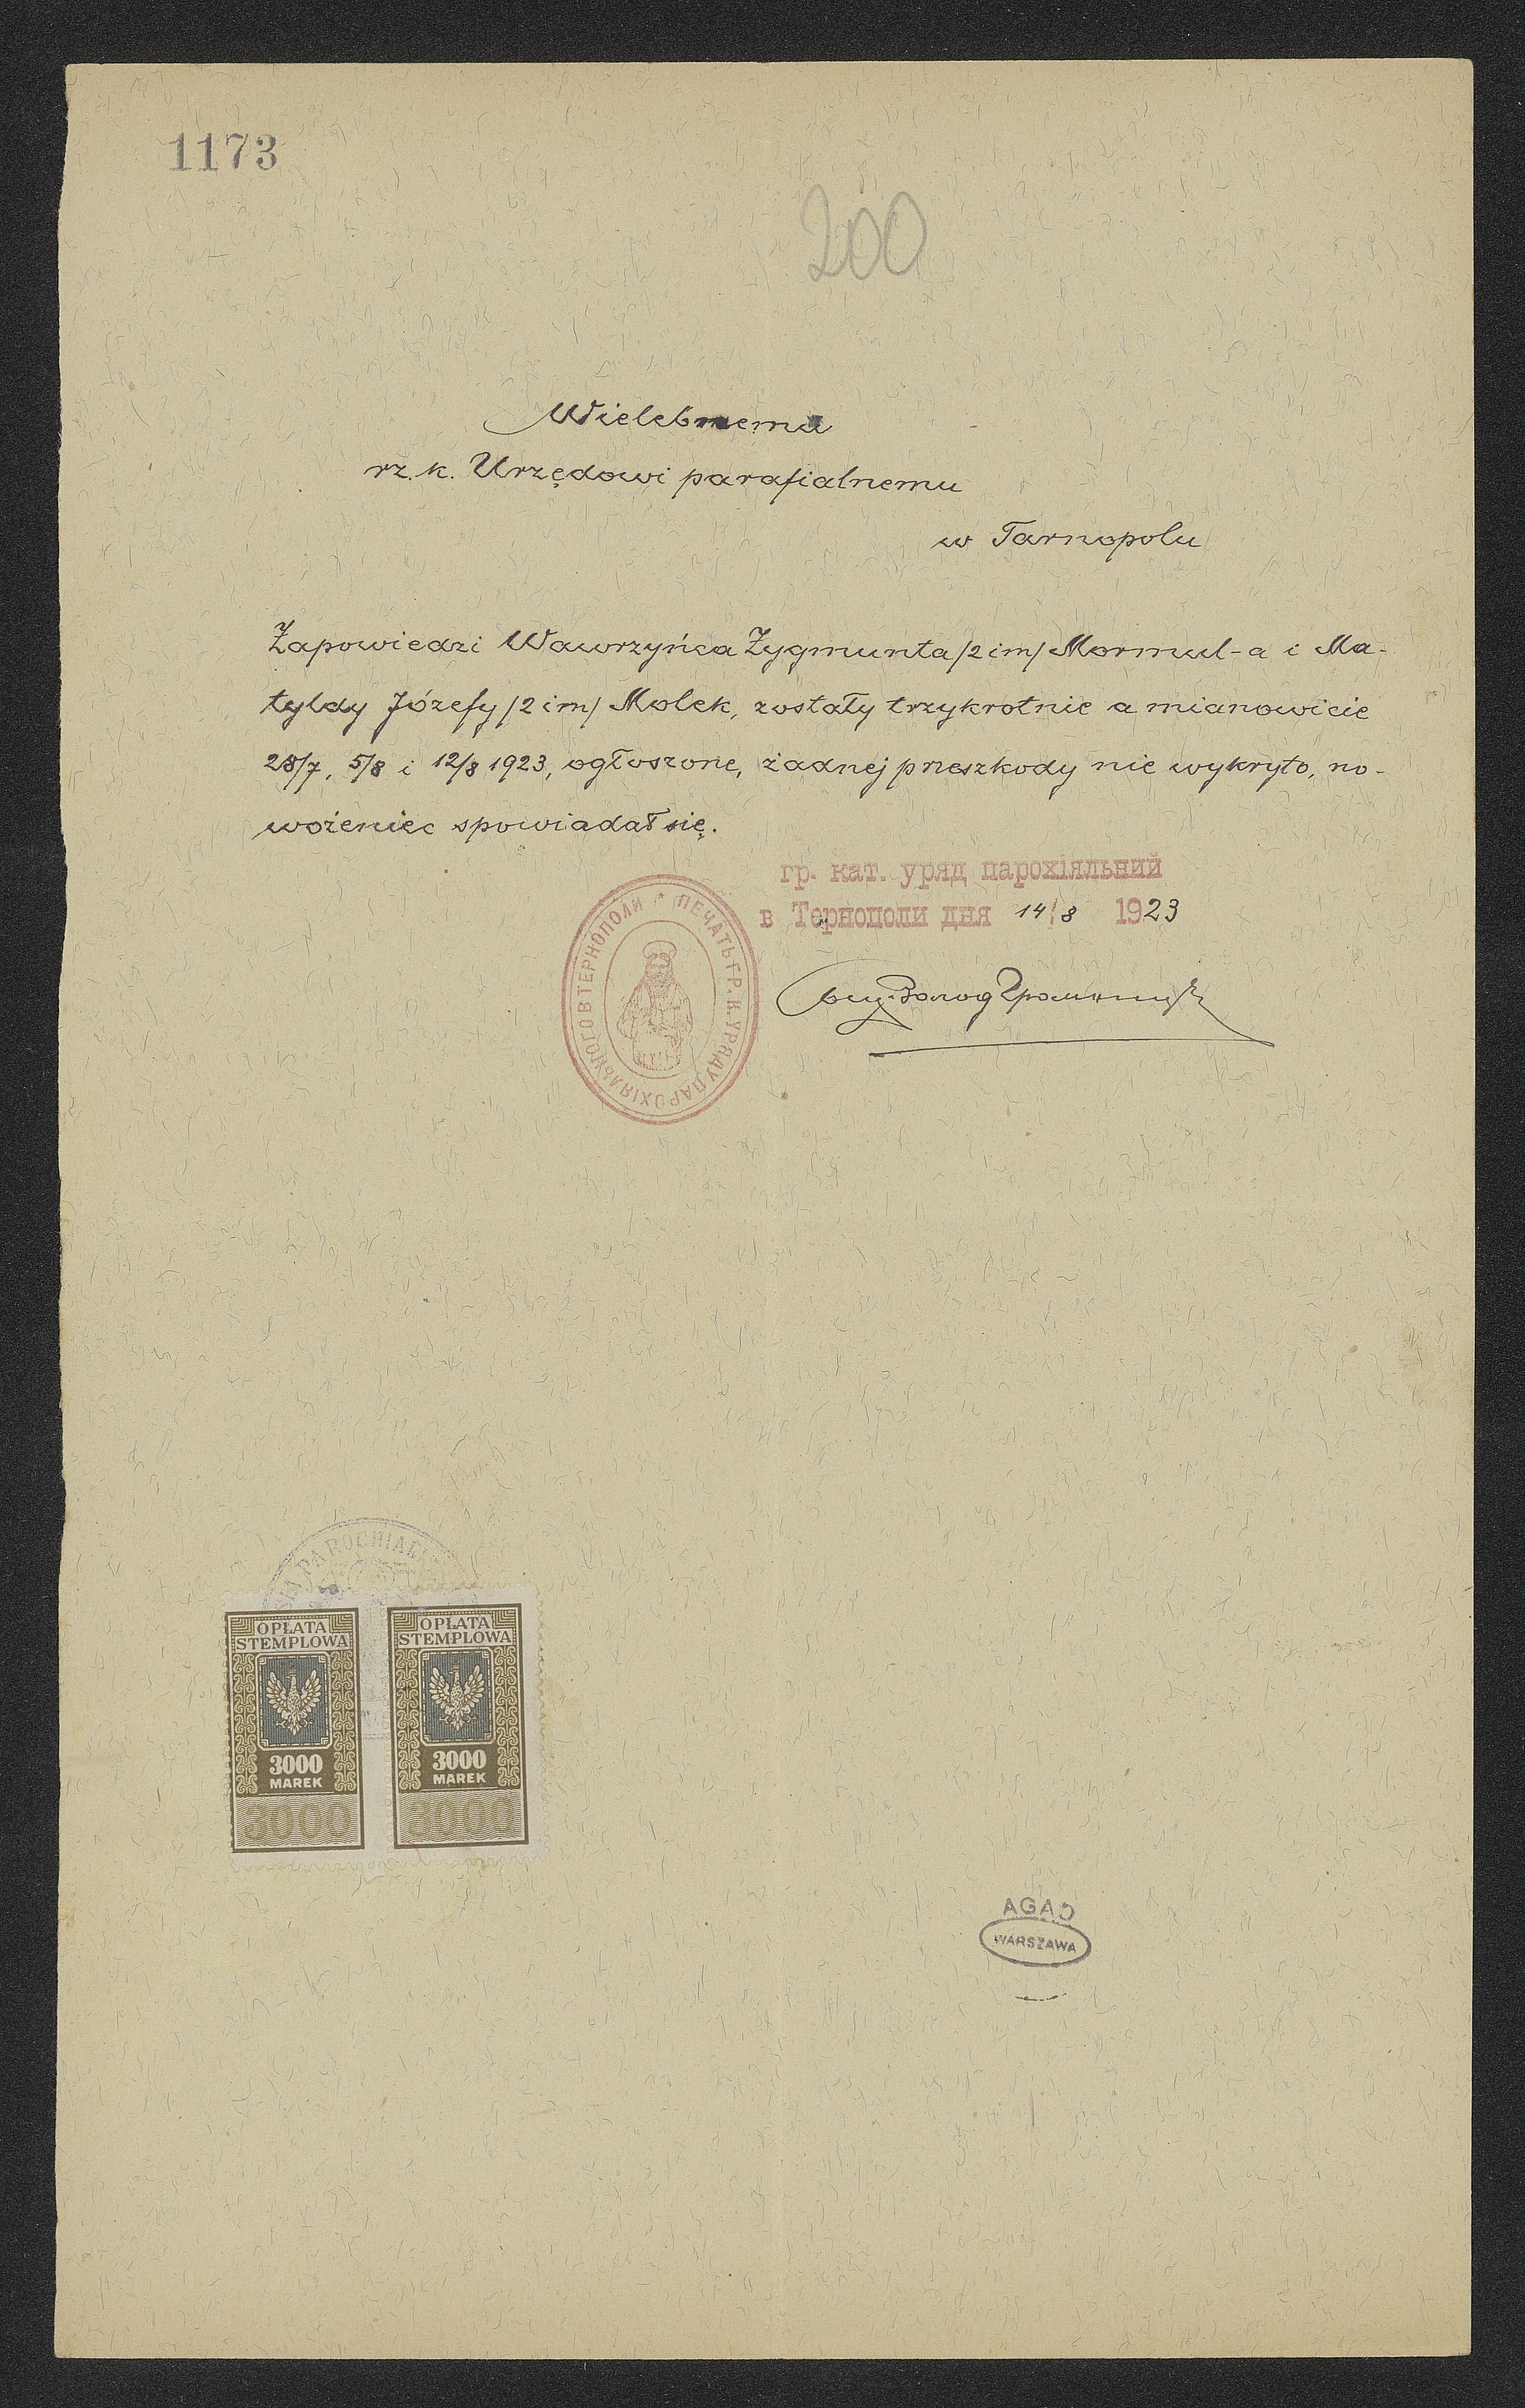 1173
200
Wielebnemu
rz. k. Urzędowi parafialnemu
w Tarnopolu
Zapowiedzi Wawrzyńca Zygmunta /2 im/ Mormul-a i Ma-
tyldy Józefy /2 im/ Molek, zostały trzykrotnie a mianowicie
28/7, 5/8 i 12/8 1923, ogłoszone, żadnej przeszkody nie wykryto, no-
wożeniec spowiadał się.
гр. кат. уряд парохіяльний
в Тернополи дня 14/8 1923
ПЕЧАТЬ ГР. К. УРЯДУ ПАРОХІЯЛЬНОГО В ТЕРНОПОЛИ *
OPŁATA
STEMPLOWA
3000
MAREK
3000
OPŁATA
STEMPLOWA
3000
MAREK
3000
AGAD
WARSZAWA